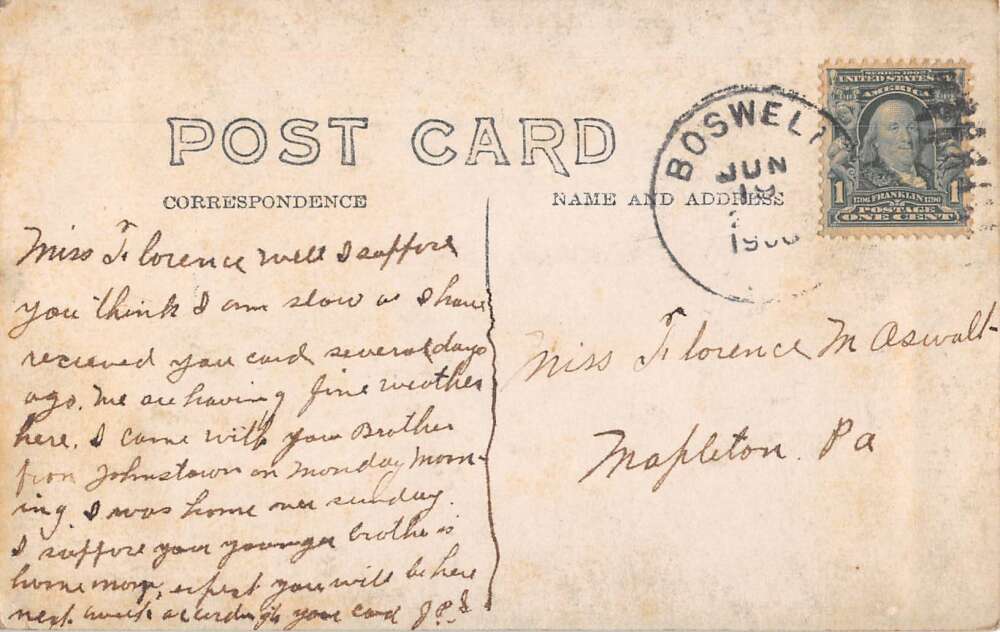 POST CARD
CORRESPONDENCE
NAME AND ADDRESS
BOSWELL
JUN
SERIES 1902
UNITED STATES OF
AMERICA
1
1706 FRANKLIN 1790
1
POSTAGE
ONE CENT
Miss Florence well I suppose
you think I am slow as I have
recieved your card several days
ago. We are having fine weather
here. I came with your Brother
from Johnstown on Monday Morn-
ing I was home over sunday.
I suppose your younger brother is
home now, expect you will be here
next week according to your card
Miss Florence M Aswalt
Mapleton. Pa